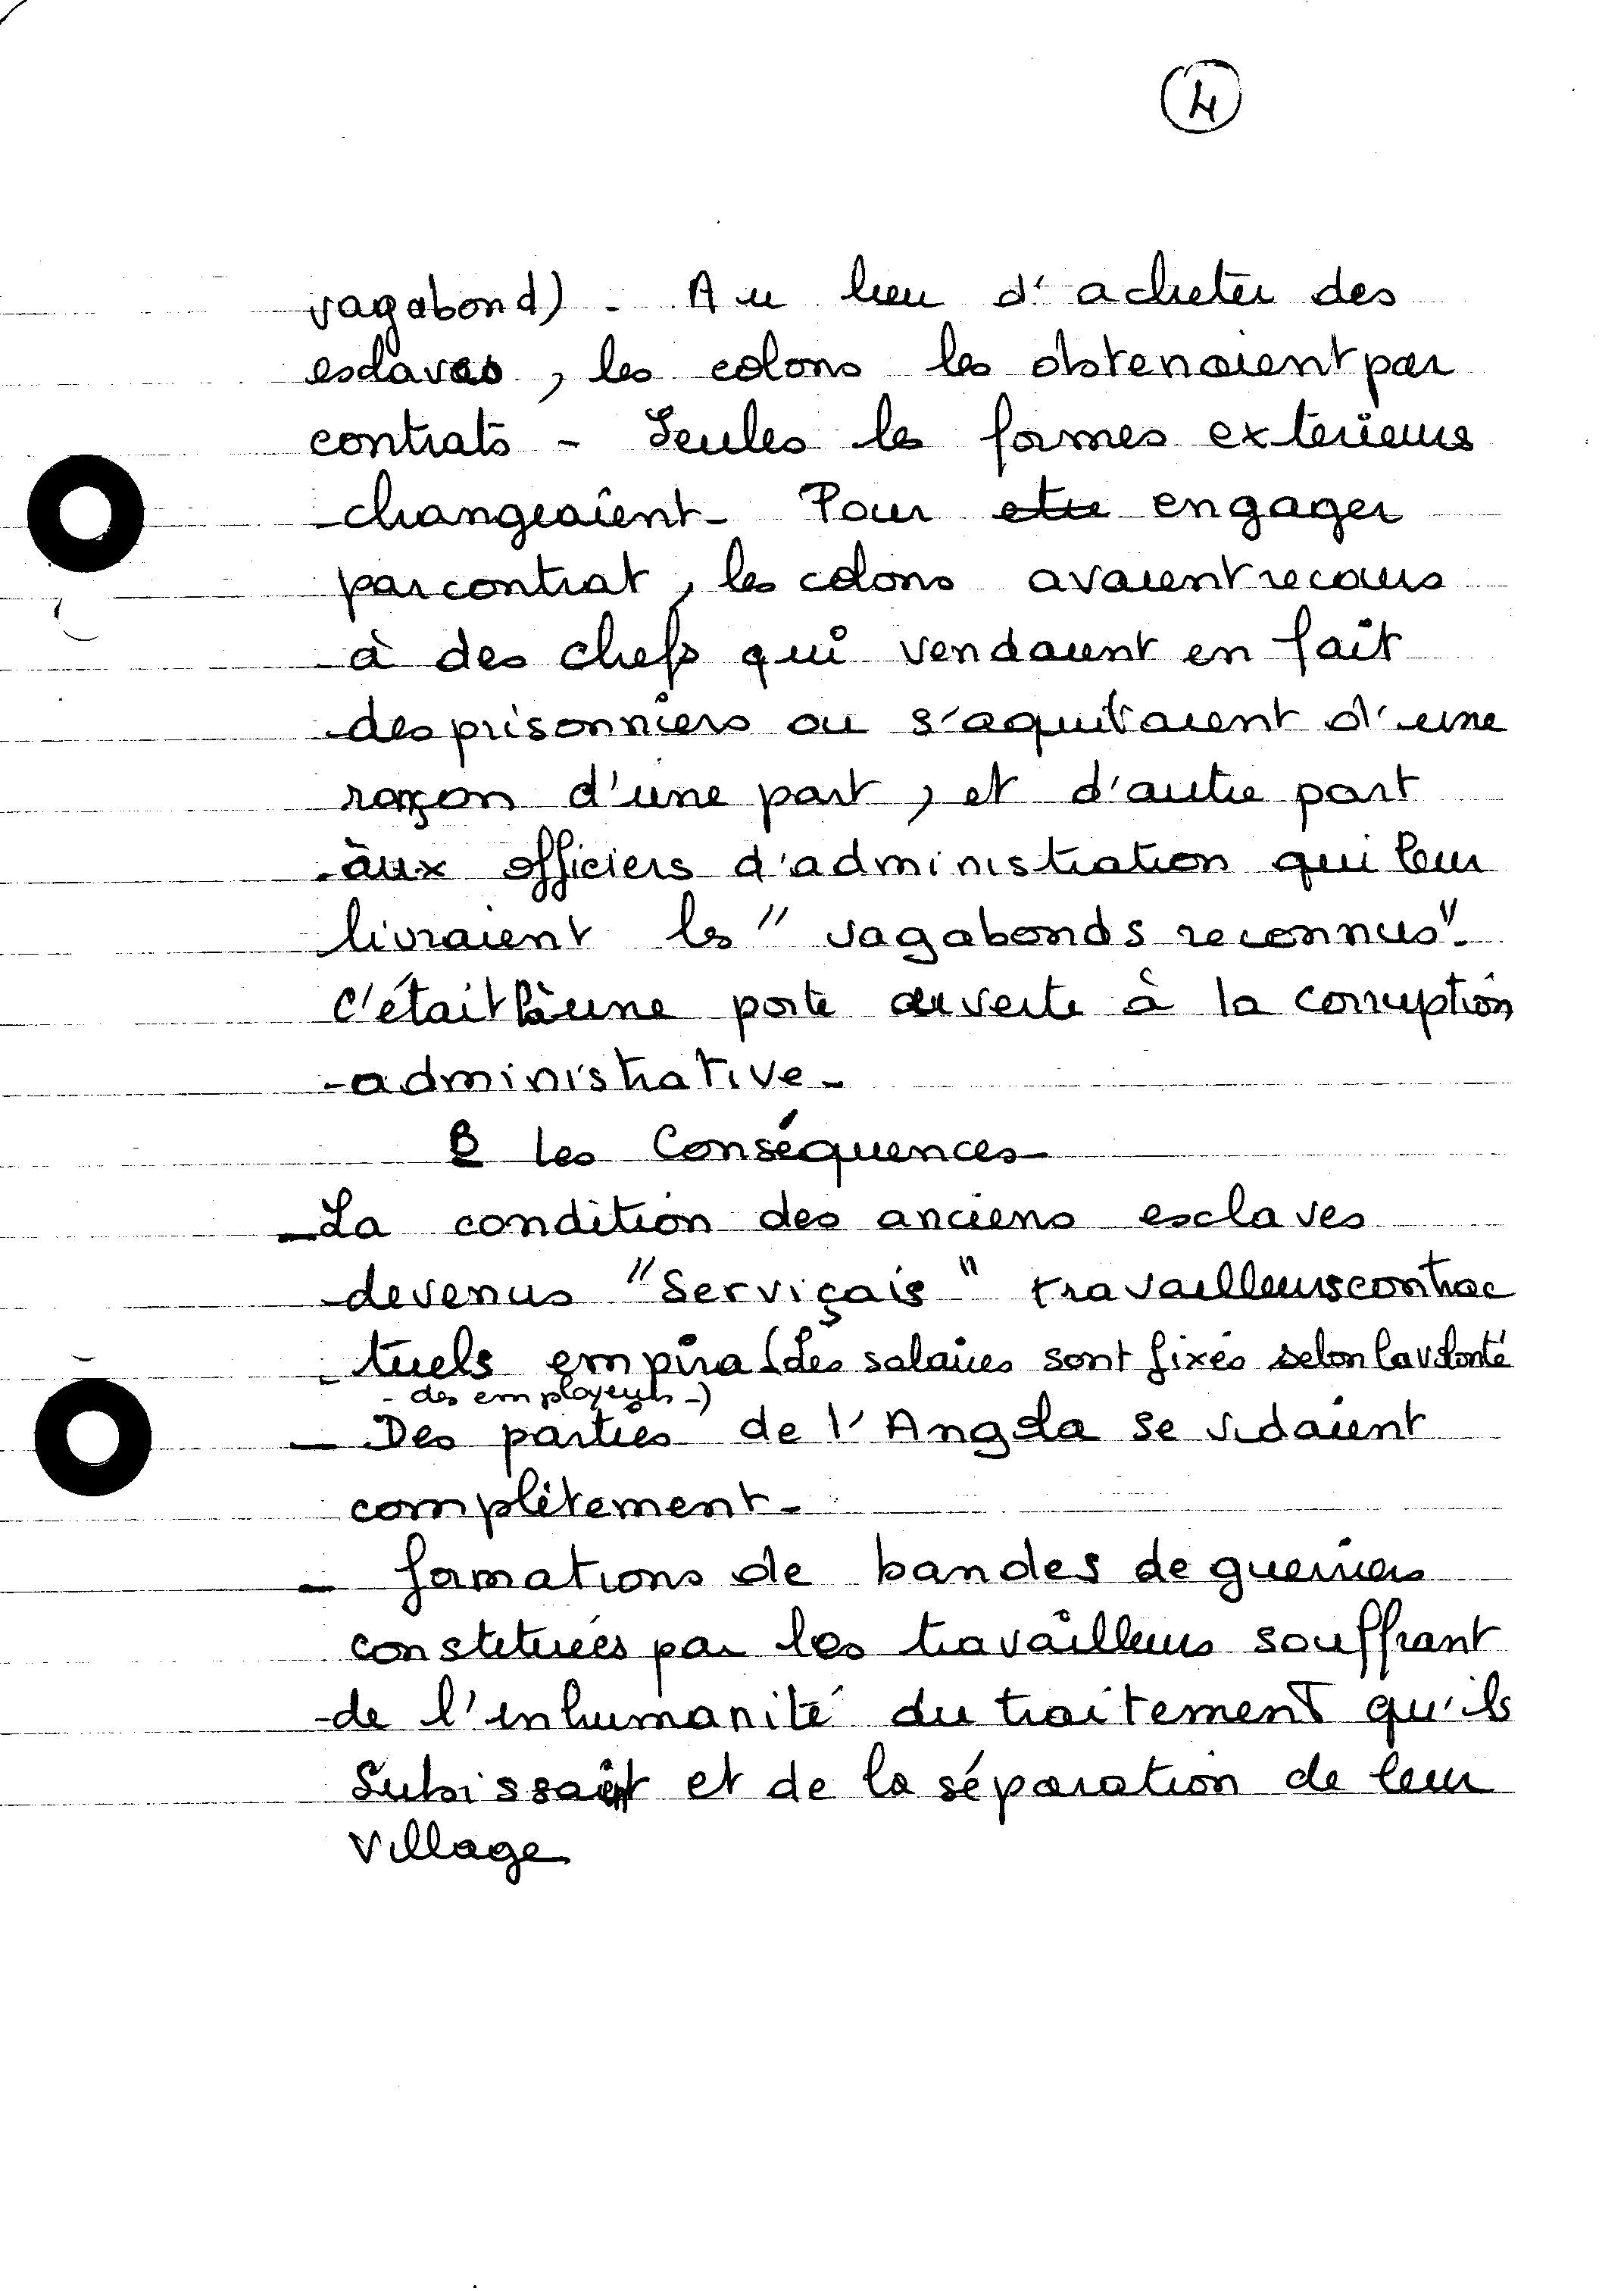 4
vagabond). Au lieu d'acheter des
esclaves, les colons les obtenaient par
contrats - Seules les formes exterieurs
changeaient - Pour etre engager
par contrat, les colons avaient recours
à des chefs qui vendaient en fait
des prisonniers ou s'aquitaient d'une
rançon d'une part, et d'autre part
aux officiers d'administration qui leur
livraient les "vagabonds reconnus".
C'était là une porte ouverte à la corruption
administrative -
B les Conséquences -
- La condition des anciens esclaves
devenus "Serviçais" travailleurs contrac
tuels empira (Les salaires sont fixés selon la volonté
des employeurs -)
- Des parties de l'Angola se vidaient
complètement -
- formations de bandes de guerriers
constituées par les travailleurs souffrant
de l'inhumanité du traitement qu'ils
Subissaient et de la séparation de leur
Village